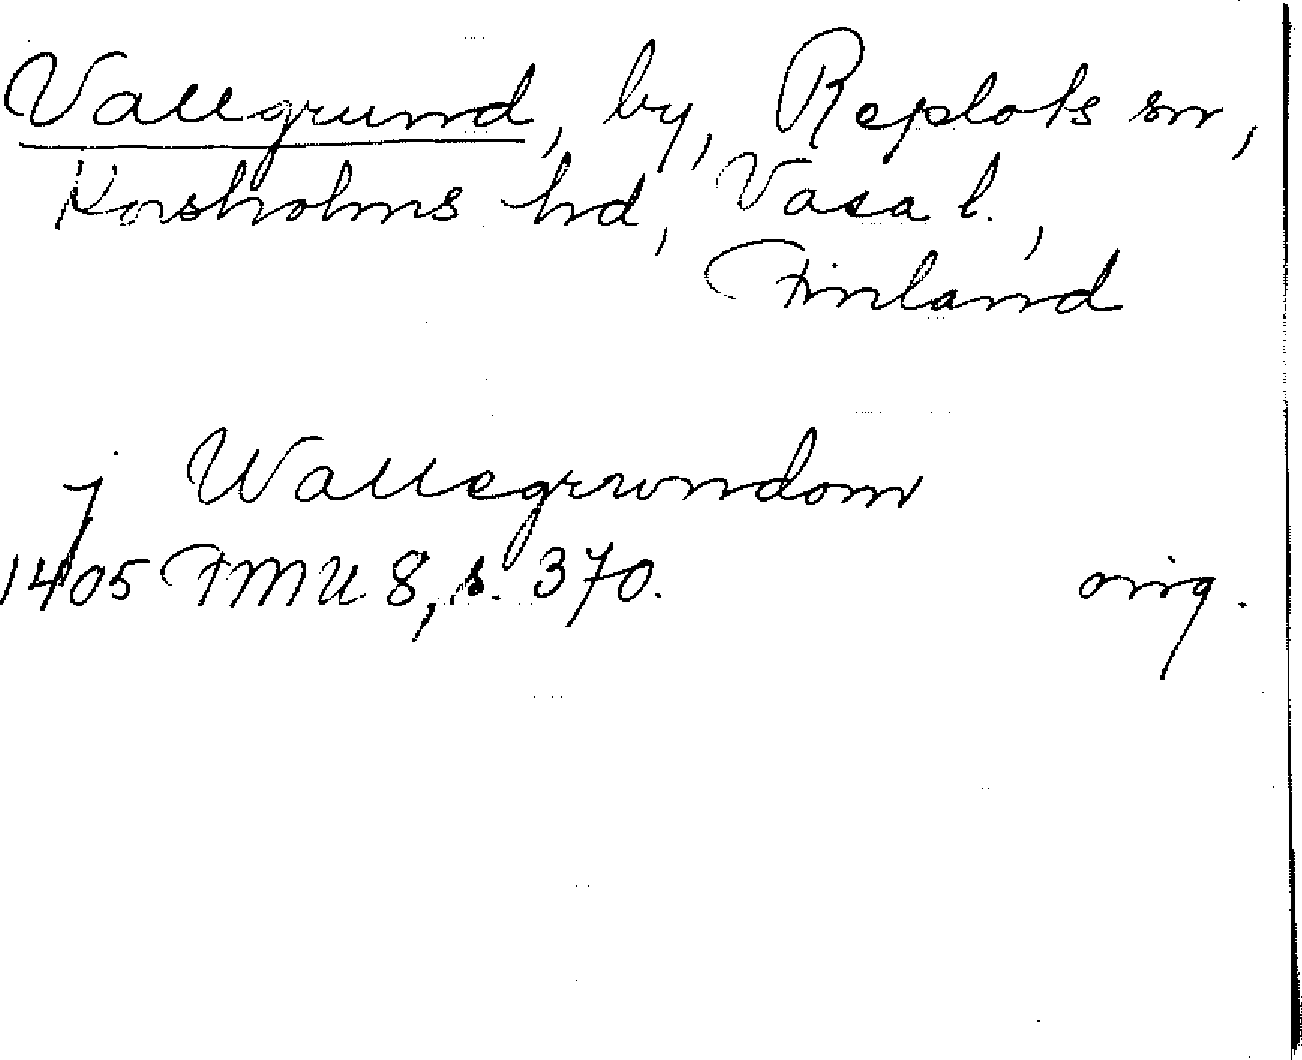 Vallgrund, by, Replots sn,
Korsholms hd, Vasa l.,
Finland
j Wallegrundom
1405 FMU 8, s. 370. orig.